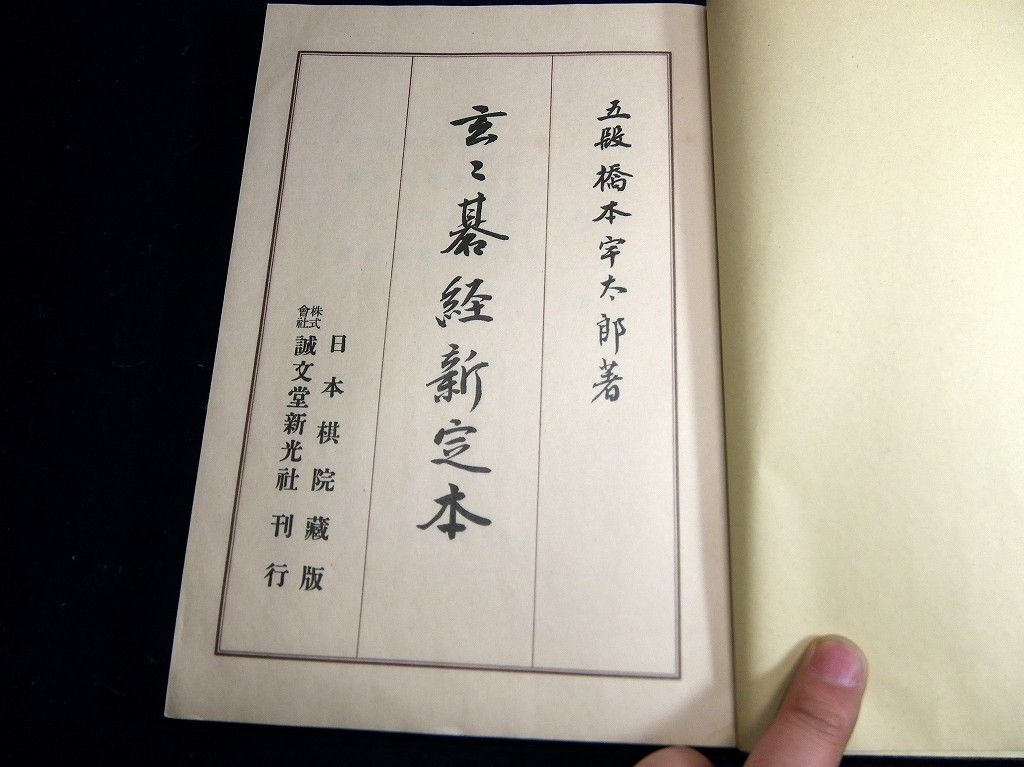 五段橋本宇太郎著
玄〻碁経新定本
日本棋院藏版
株式會社誠文堂新光社刊行